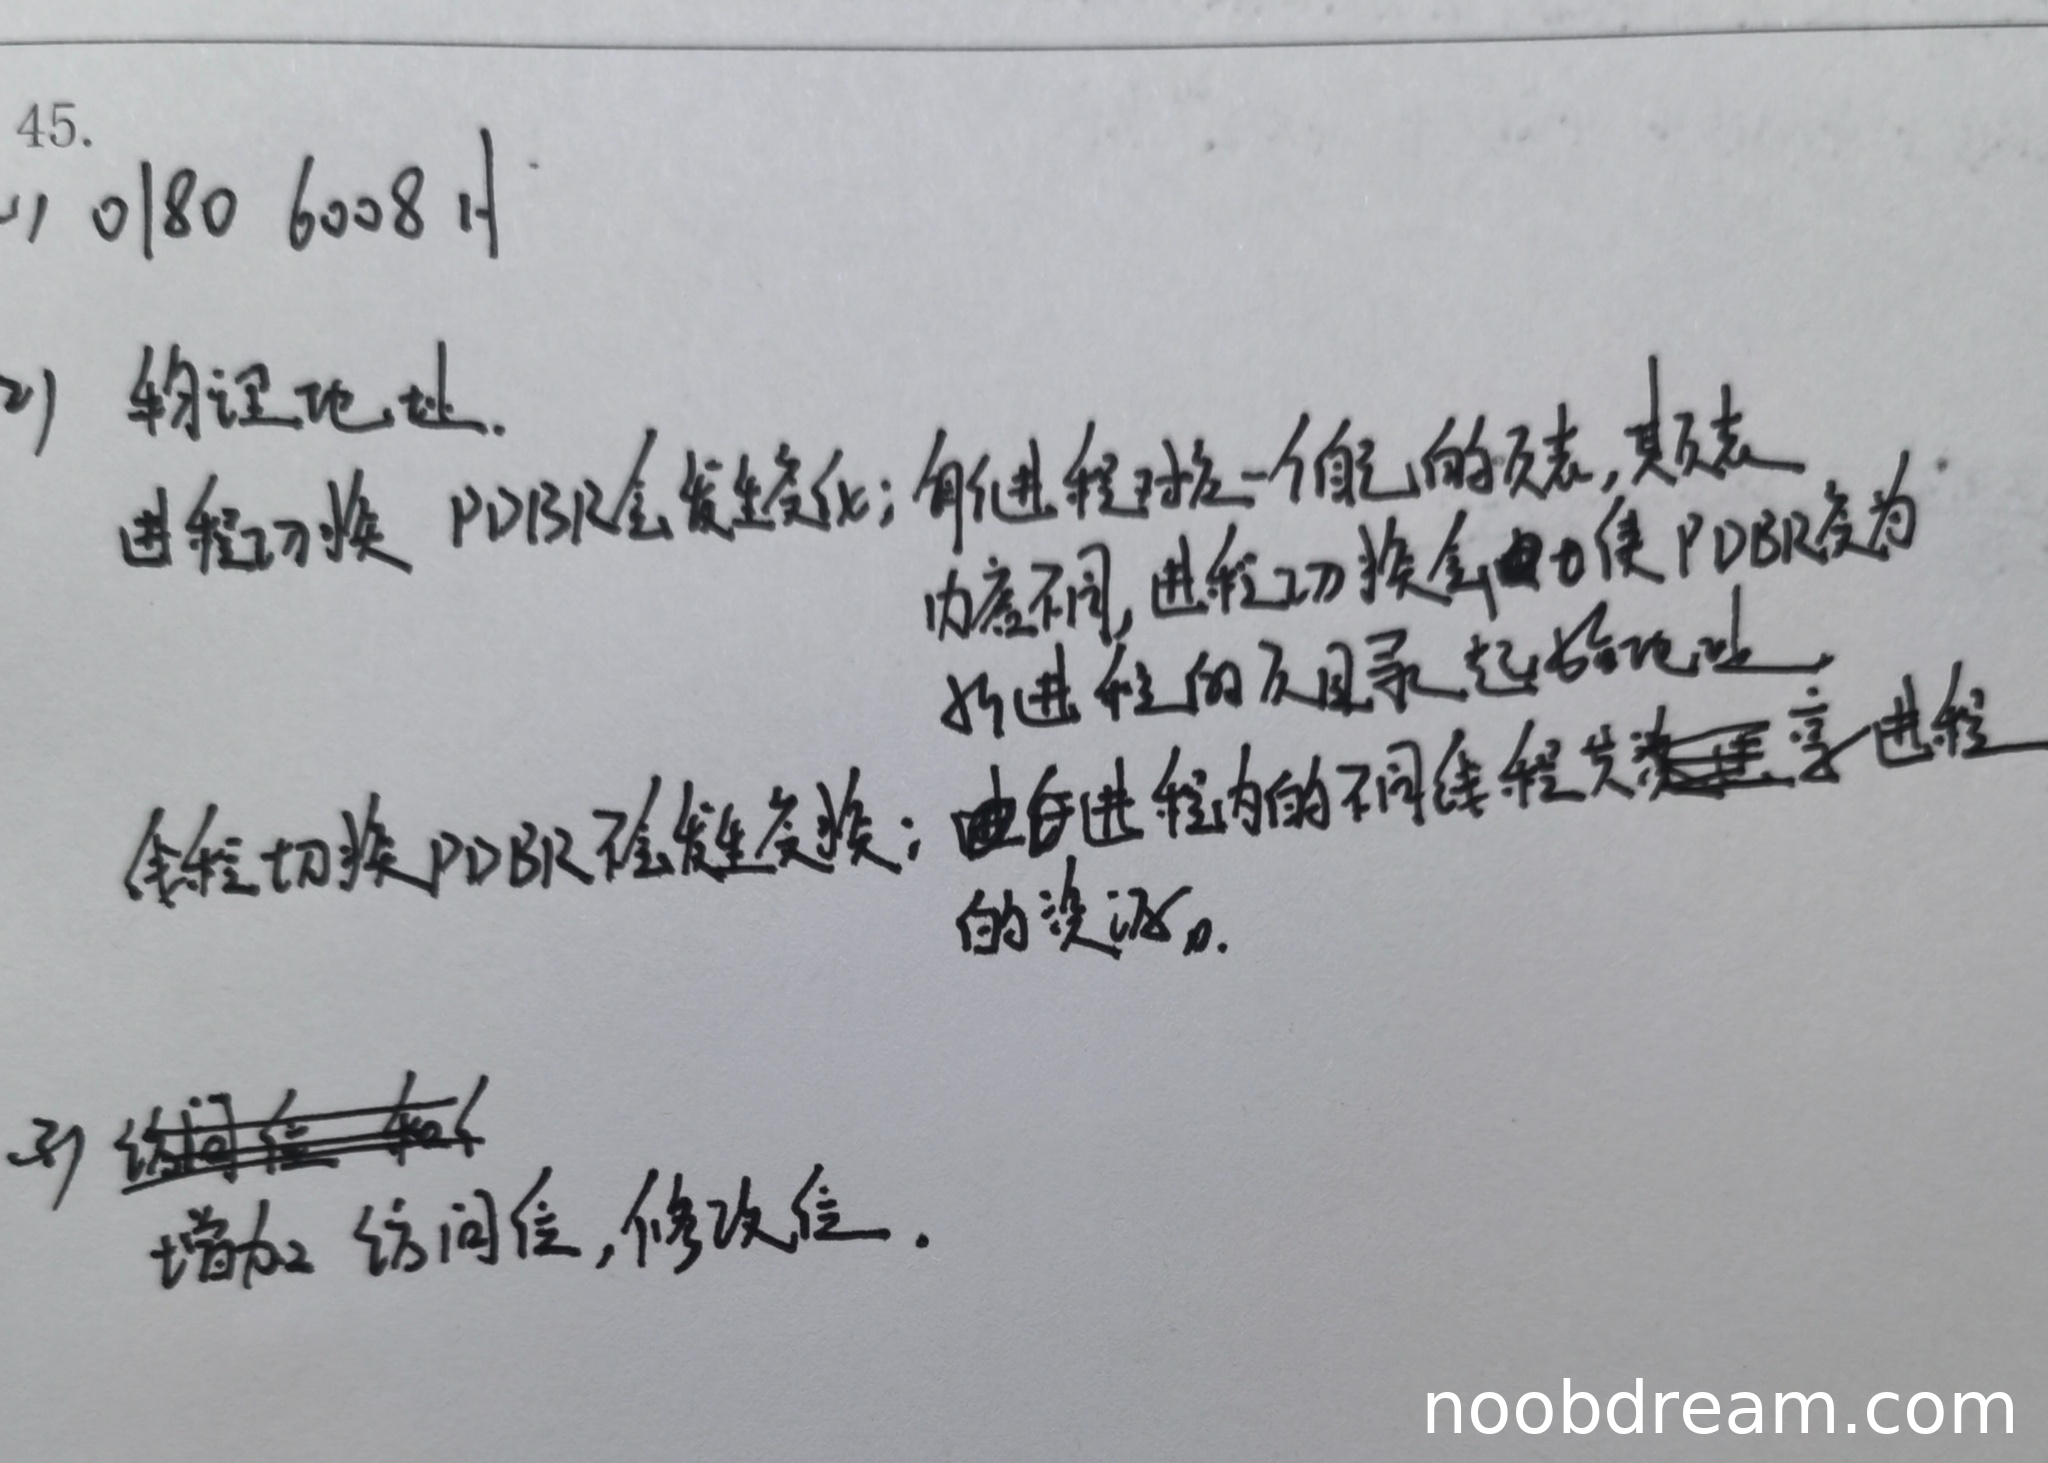 45.
1) 0180 6008 H
2) 物理地址.
进程切换 PDBR会发生变化; 每个进程对应一个自己的页表, 其页表
内容不同, 进程切换会使PDBR变为
新进程的页目录起始地址.
线程切换PDBR不会发生变换; 同进程内的不同线程共享进程
的资源.
3)
增加 访问位, 修改位.
noobdream.com